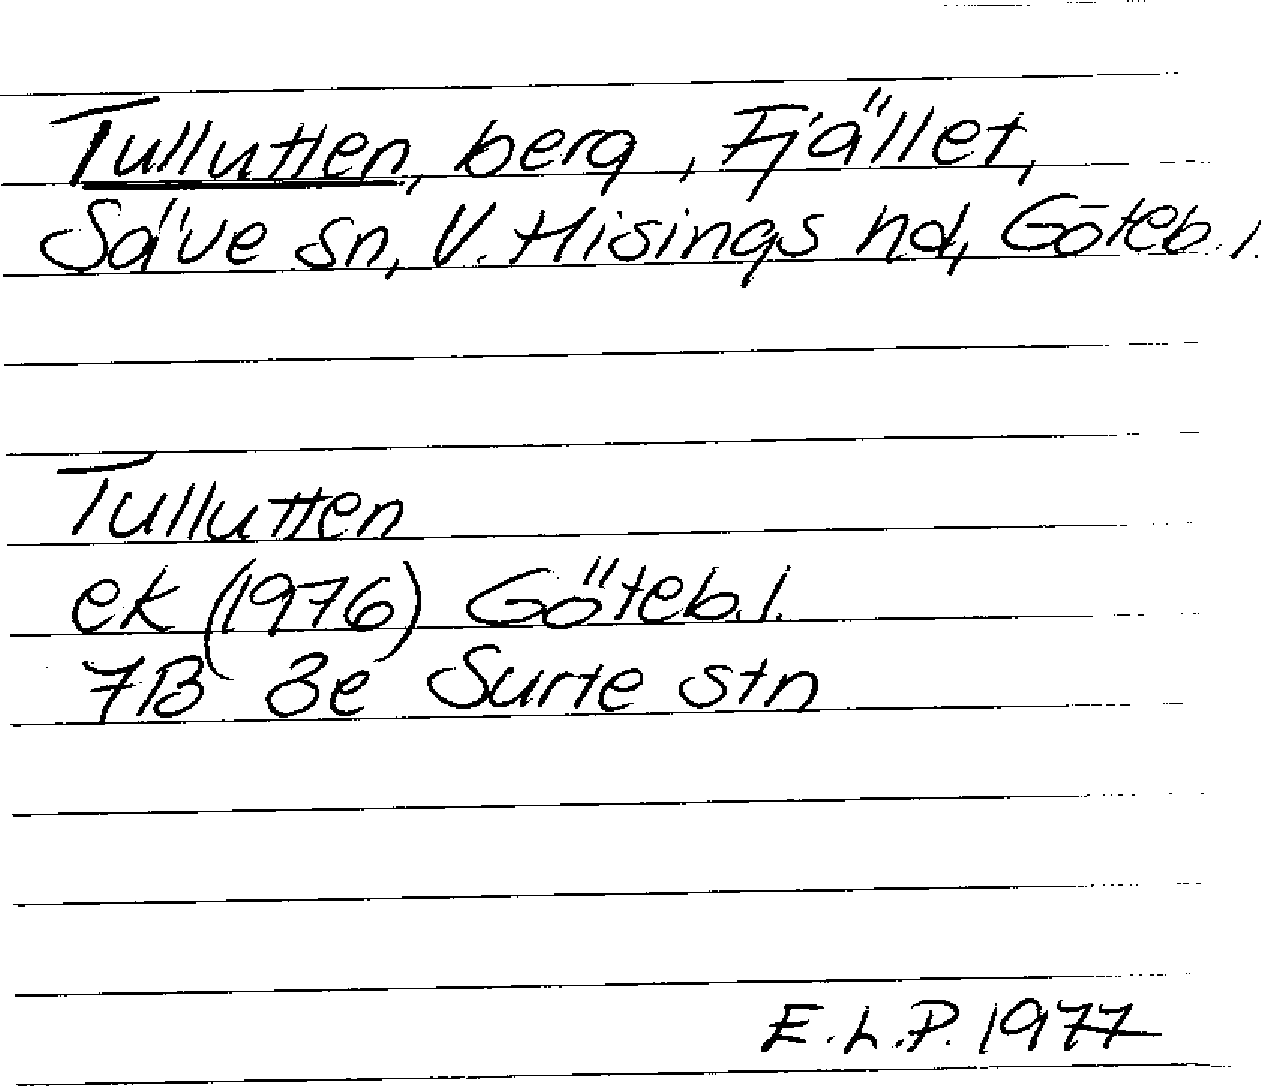 Tullutten, berg, Fjället,
Säve sn, V. Hisings hd, Göteb. l.
Tullutten
ek (1976) Göteb. l.
7B 3e Surte stn
E.L.P. 1977